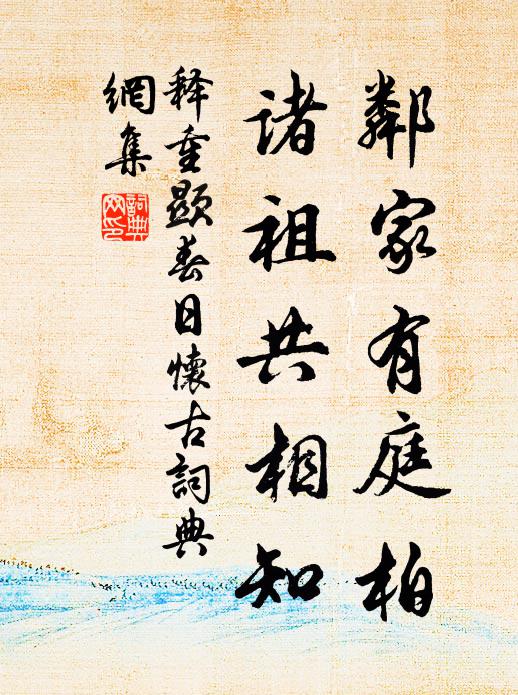 鄰家有庭柏
诸祖共相知
释重顯春日懷古詞典
網集
詞典
网印